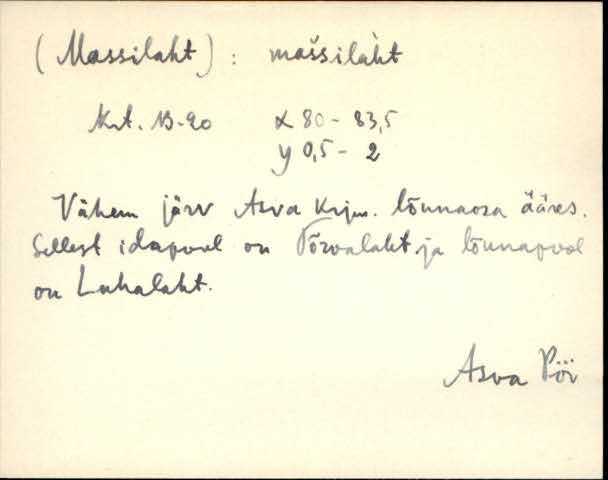 (Massilaht) : maššilàht
Krt. B-20 x 80 - 83,5
y 0,5 - 2
Vähem järv Asva krjm. lõunaosa ääres.
Sellest idapool on Tõrvalaht ja lõunapool
on Luhalaht.
Asva Pöi